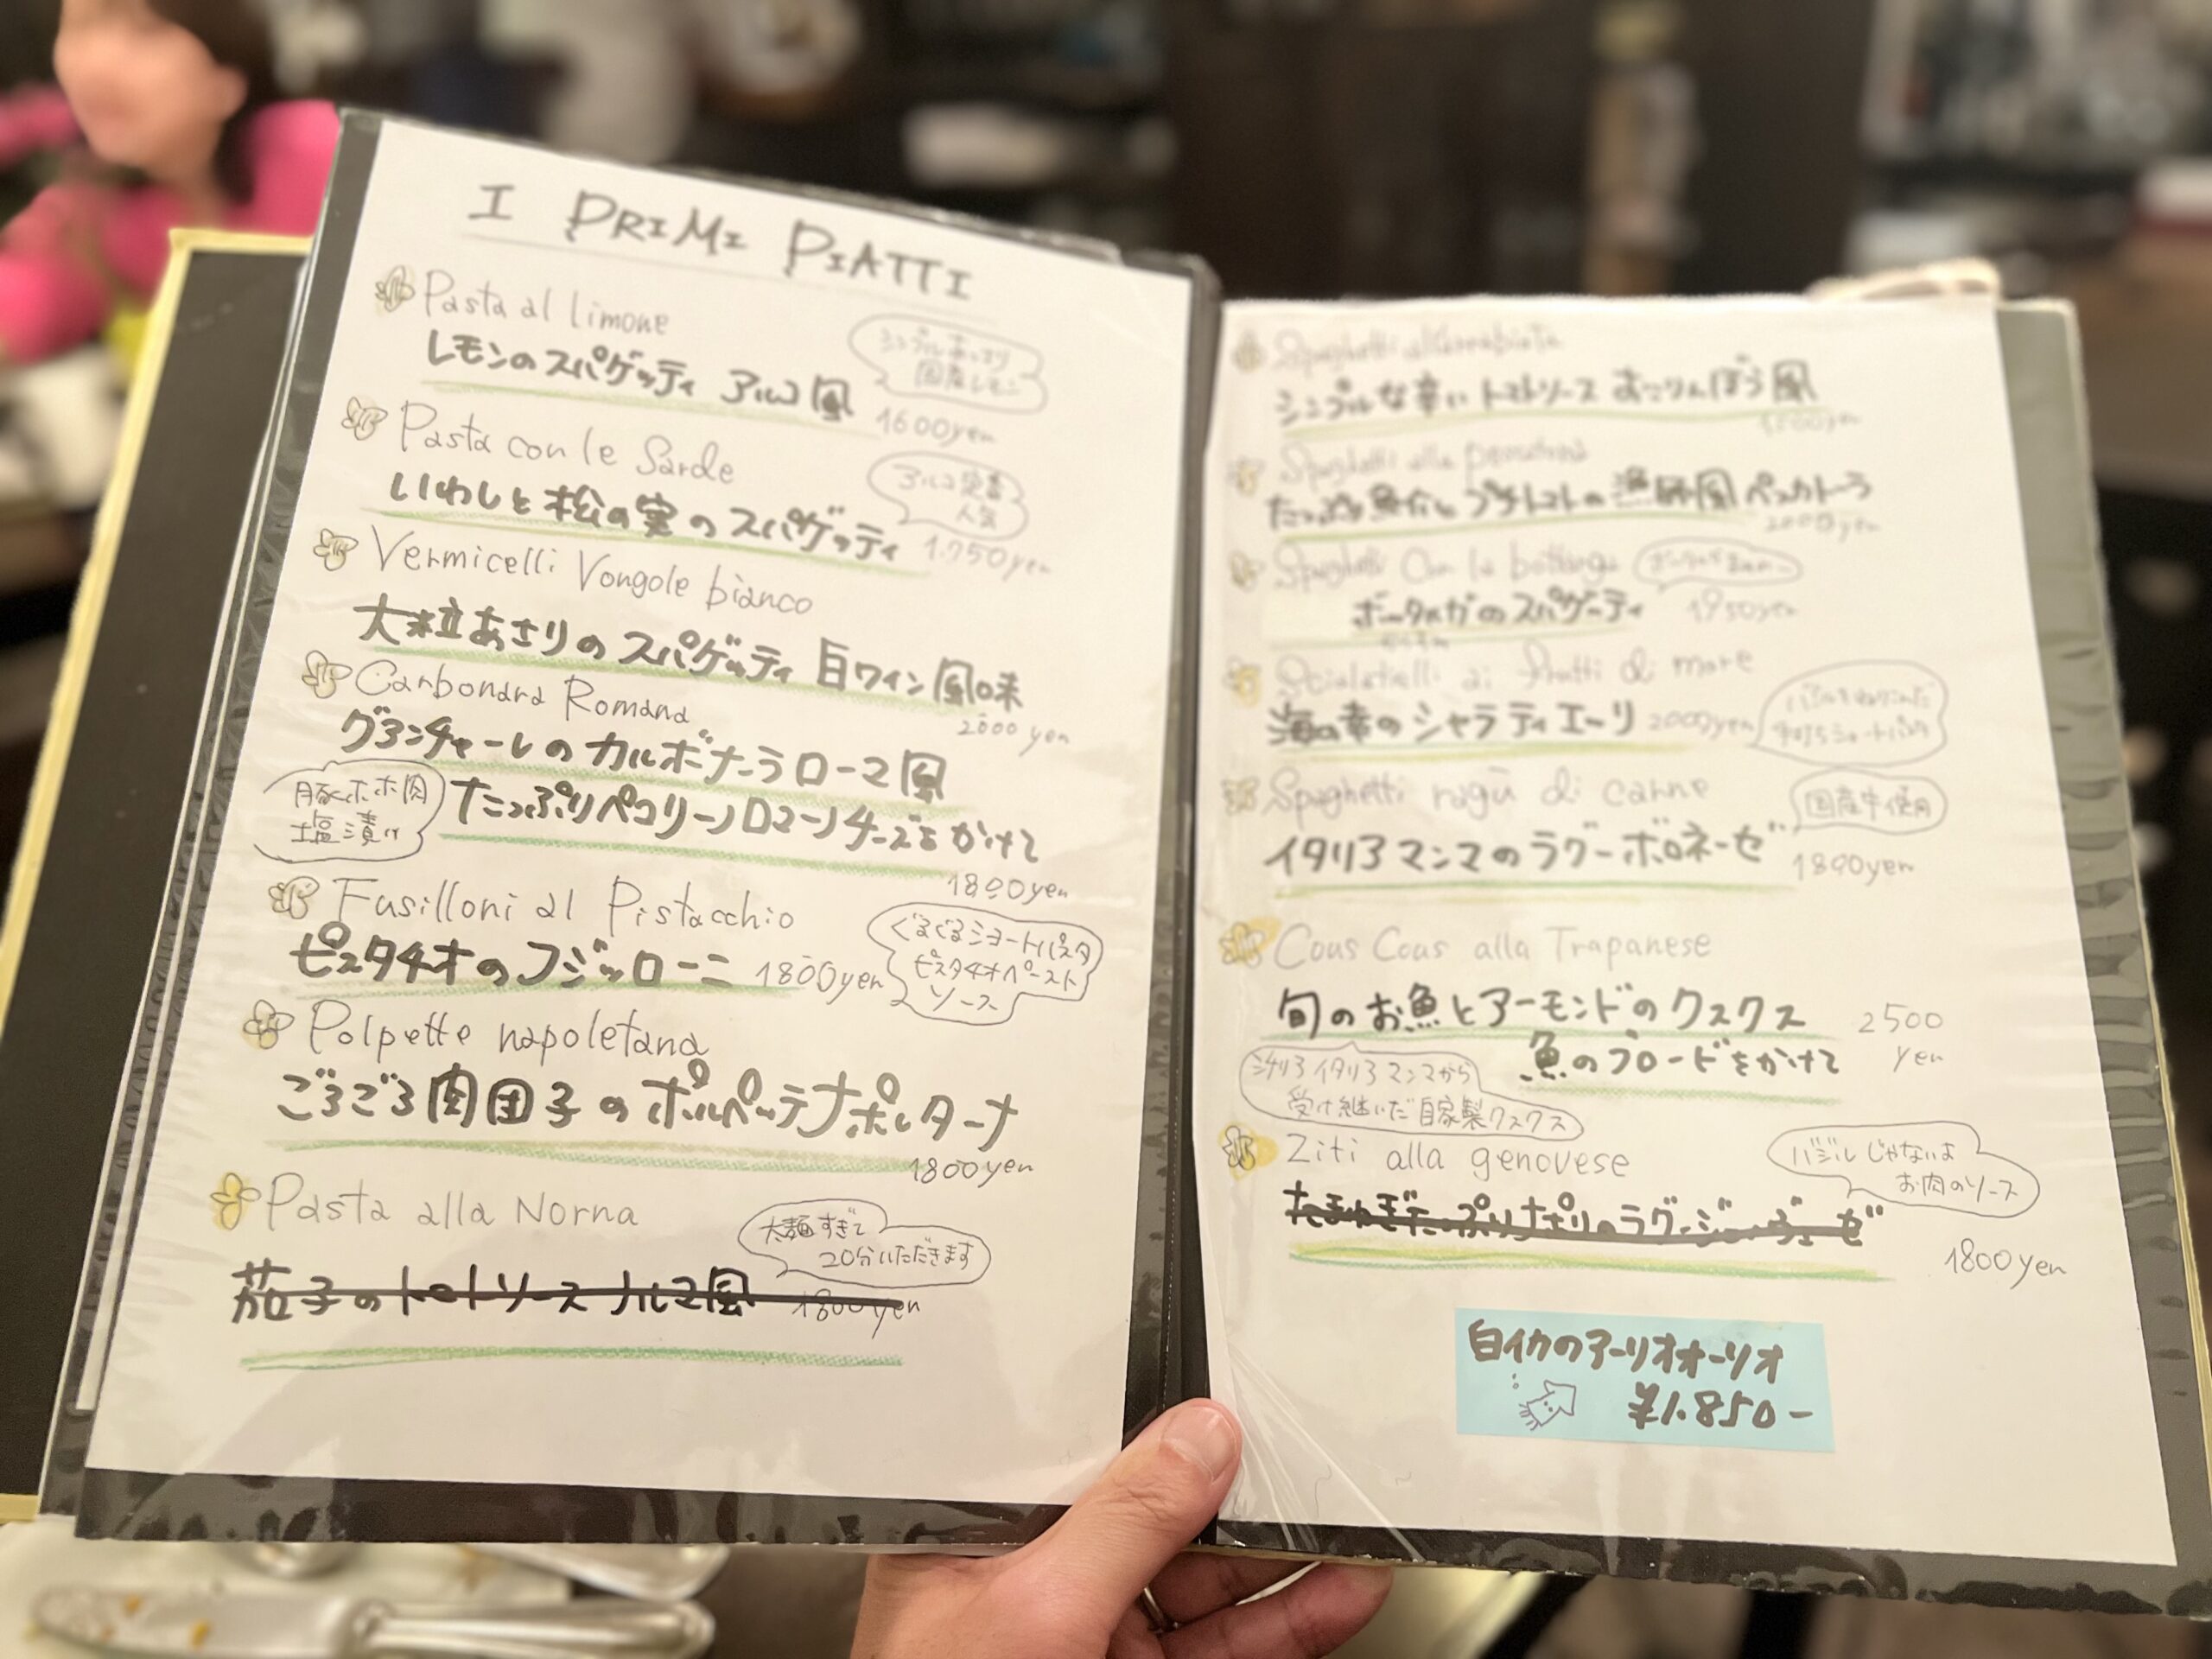 I PRIMI PIATTI
Pasta al limone
レモンのスパゲッティ アルコ風
シンプルあっさり
国産レモン
1600yen
Pasta con le Sarde
いわしと松の実のスパゲッティ
アルコ定番
人気
1.750yen
Vermicelli Vongole bianco
大粒あさりのスパゲッティ 白ワイン風味
2000yen
Carbonara Romana
グアンチャーレのカルボナーラローマ風
豚ホホ肉
塩漬け
たっぷりペコリーノロマーノチーズをかけて
1800yen
Fusilloni al Pistacchio
ピスタチオのフジッローニ 1800yen
ぐるぐるショートパスタ
ピスタチオペースト
ソース
Polpette napoletana
ごろごろ肉団子のポルペッテナポレターナ
1800yen
Pasta alla Norna
太麺すぎて
20分いただきます
茄子のトマトソースノルマ風 1800yen
Spaghetti all'arrabiata
シンプルな辛いトマトソースおこりんぼう風
Spaghetti alla
たっぷり魚介とプチトマトの漁師風ペスカトーラ
2000yen
Spaghetti Con la bottarga
ボータルガのスパゲーティ 1950yen
Scialatielli ai frutti di mare
海の幸のシャラティエーリ 2000yen
バジルをねりこんだ
手打ちショートパスタ
Spaghetti ragū di carne
国産牛使用
イタリアマンマのラグーボロネーゼ 1800yen
Cous Cous alla Trapanese
旬のお魚とアーモンドのクスクス
魚のブロードをかけて
2500
yen
シチリアイタリアマンマから
受け継いだ自家製クスクス
Ziti alla genovese
バジルじゃないよ
お肉のソース
たまねぎたっぷりナポリのラグージェノヴェーゼ
1800yen
白イカのアーリオオーリオ
¥1.850-